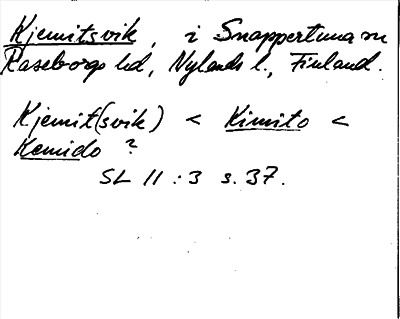 Kjemitsvik, i Snappertuna sn
Raseborgs hd, Nylands l., Finland.
Kjemit(svik) < Kimito <
Kemido ?
SL 11 : 3 s. 37.